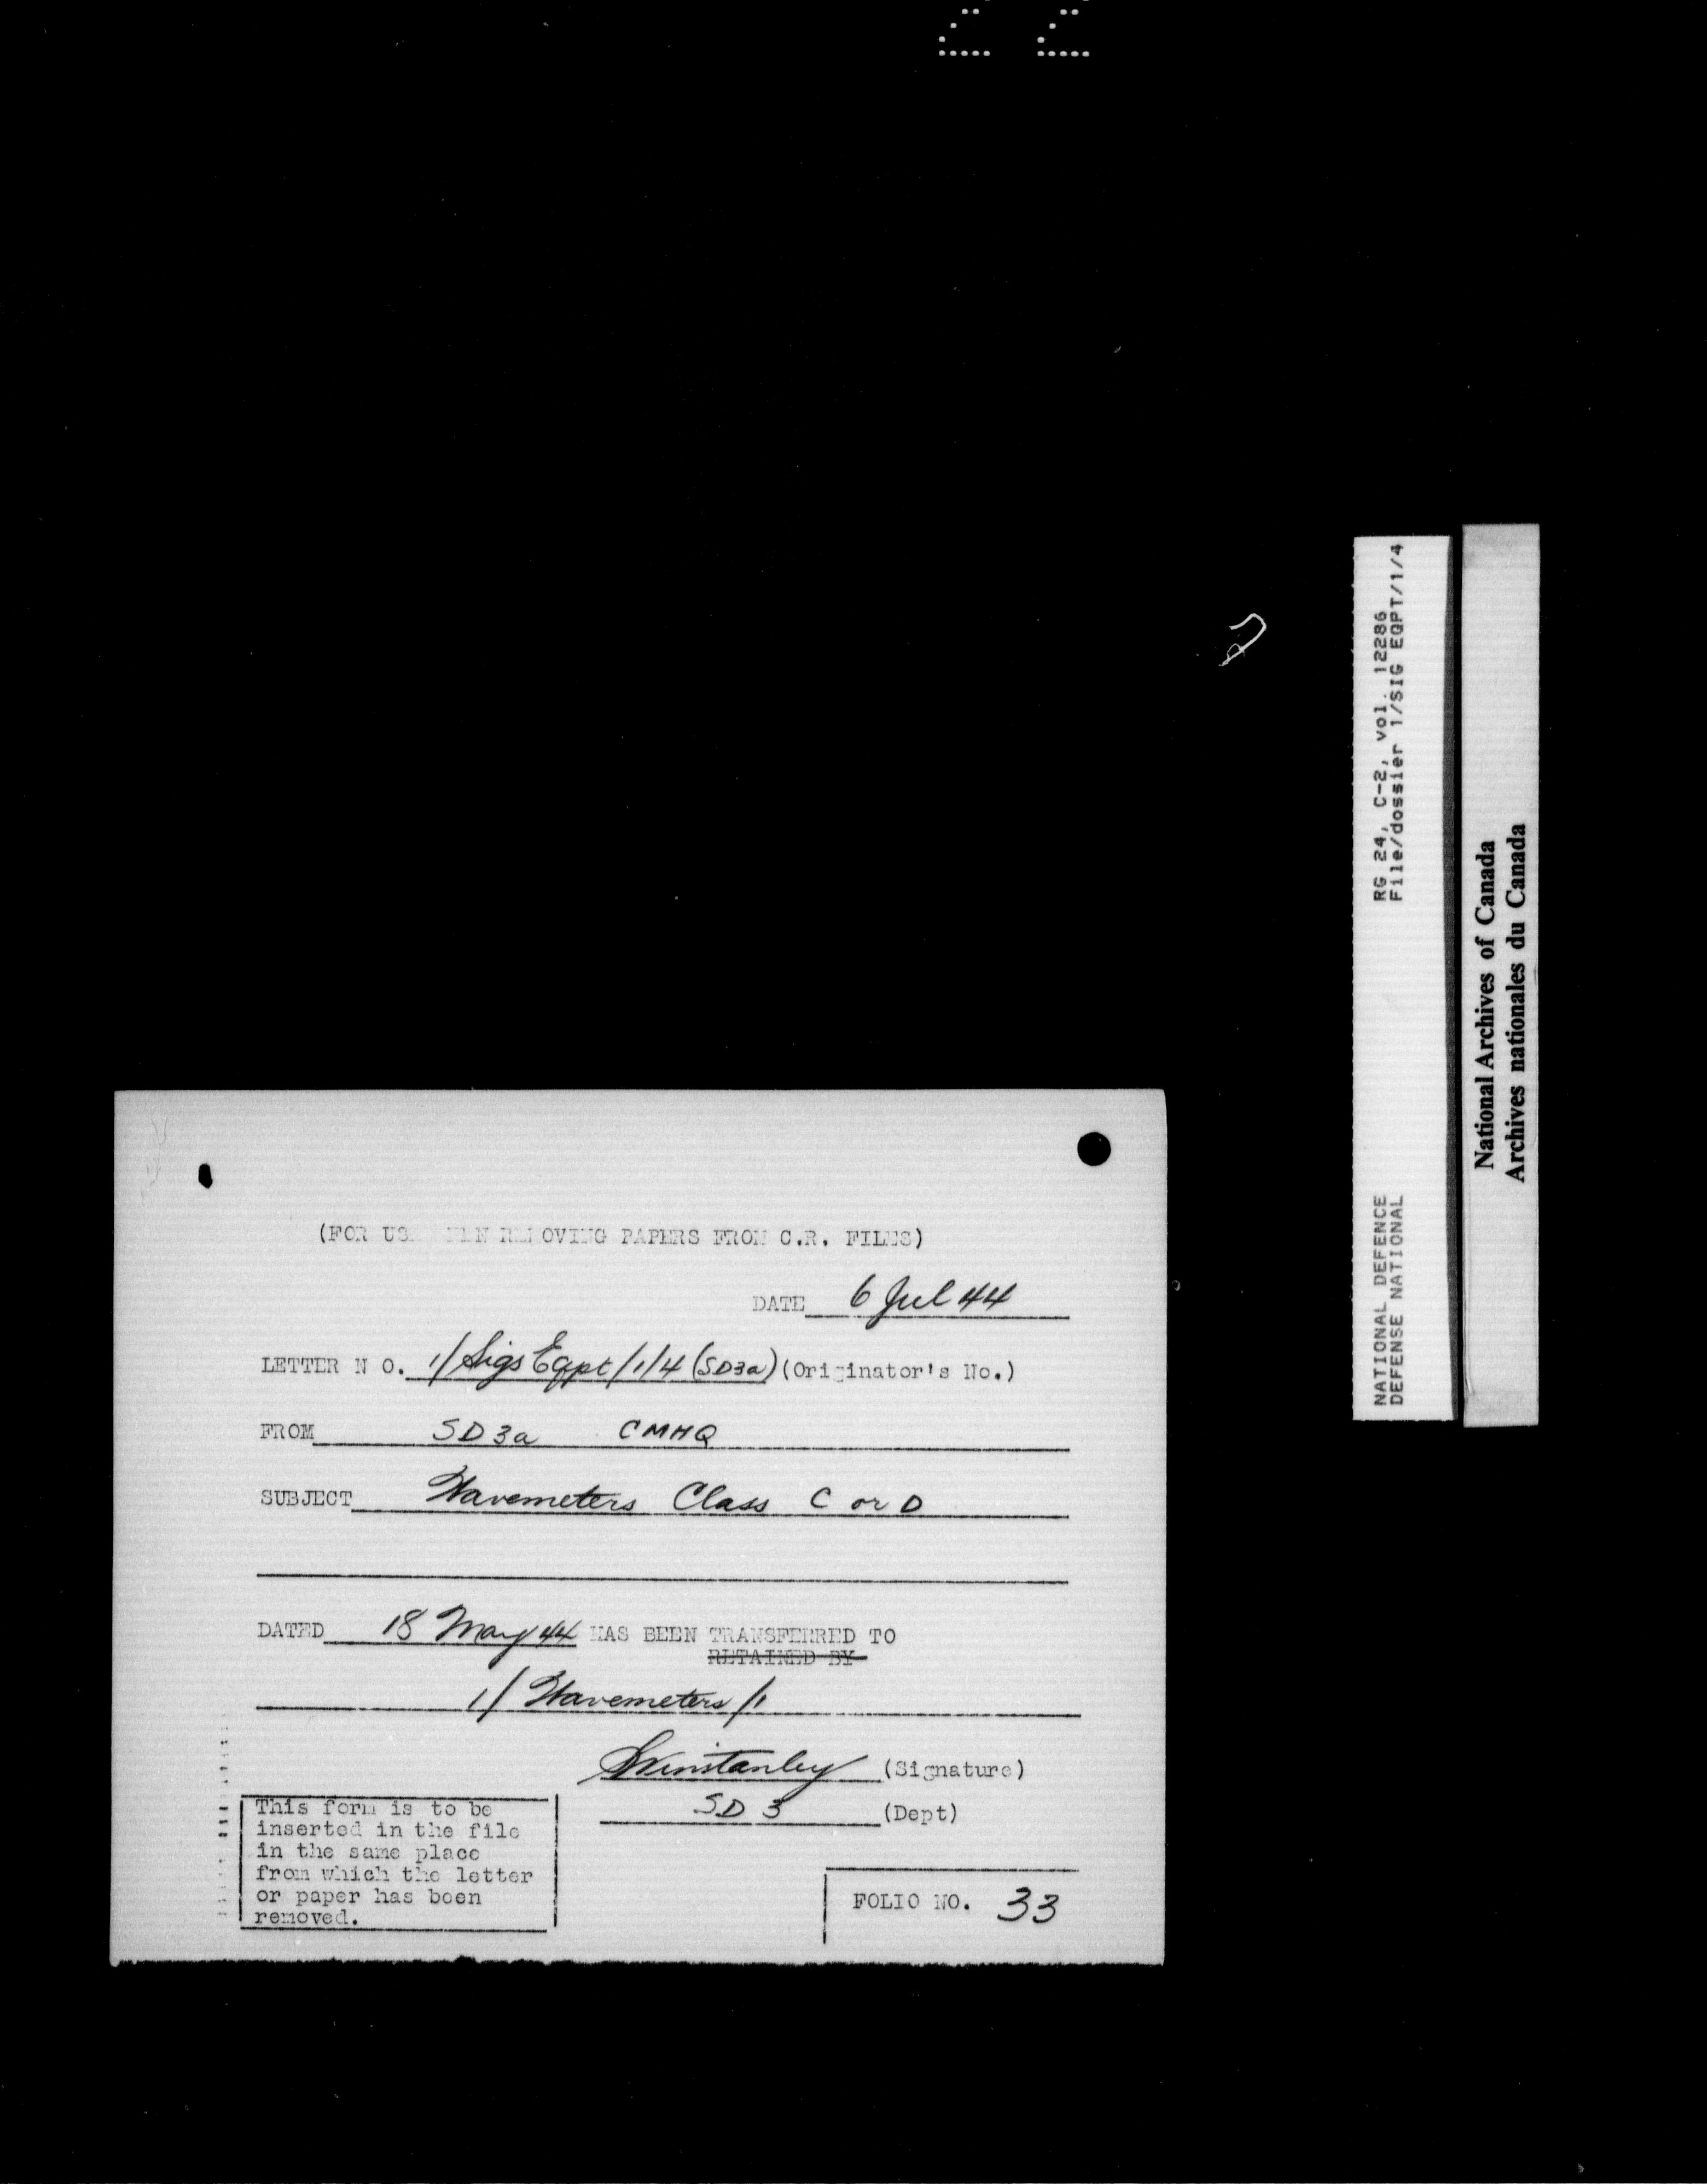 (FOR USE WHEN REMOVING PAPERS FROM C.R. FILES)
DATE 6 Jul 44
LETTER N O. 1/Sigs Eqpt/1/4 (SD3a) (Originator's No.)
FROM SD3a CMHQ
SUBJECT Wavemeters Class C or D
DATED 18 May 44 HAS BEEN TRANSFERRED TO
RETAINED BY
1/Wavemeters/1
Winstanley (Signature)
SD 3 (Dept)
This form is to be
inserted in the file
in the same place
from which the letter
or paper has been
removed.
FOLIO NO. 33
NATIONAL DEFENCE RG 24, C-2, vol. 12286
DEFENSE NATIONAL File/dossier 1/SIG EQPT/1/4
National Archives of Canada
Archives nationales du Canada